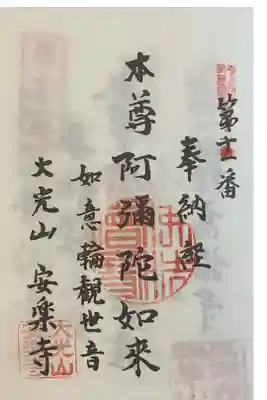 第十二番
奉納経
本尊阿彌陀如来
如意輪観世音
大光山 安楽寺